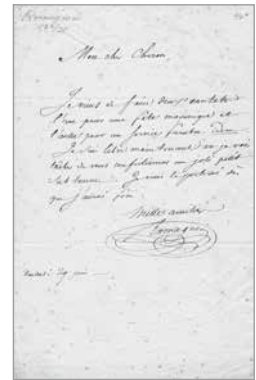 Romagnesi
Mon cher Choron,
Je viens de faire deux cantates
l'une pour une fête maçonique et
l'autre pour un service funèbre
Je suis libre maintenant et je vais
tâcher de vous confectionner un joli petit
Je vous le porterai dès
que j'aurai fini
mille amitiés
Romagnesi
29 juin